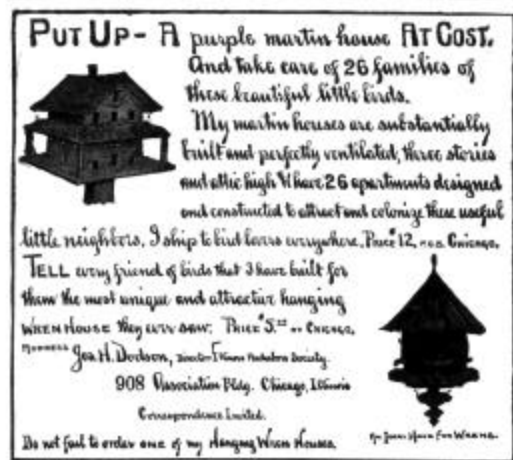 PUT UP - A purple martin house AT COST.
And take care of 26 families of
these beautiful little birds.
My martin houses are substantially
built and perfectly ventilated, three stories
and attic high & have 26 apartments designed
and constructed to attract and colonize these useful
little neighbors. I ship to bird lovers everywhere. PRICE $12, F.O.B. CHICAGO.
TELL every friend of birds that I have built for
them the most unique and attractive hanging
WREN HOUSE they ever saw. PRICE $5. CHICAGO.
Jos. H. Dodson, Director Illinois Audubon Society.
908 Association Bldg. Chicago, Illinois
Correspondence Invited.
Do not fail to order one of my Hanging Wren Houses.
FOR WRENS.